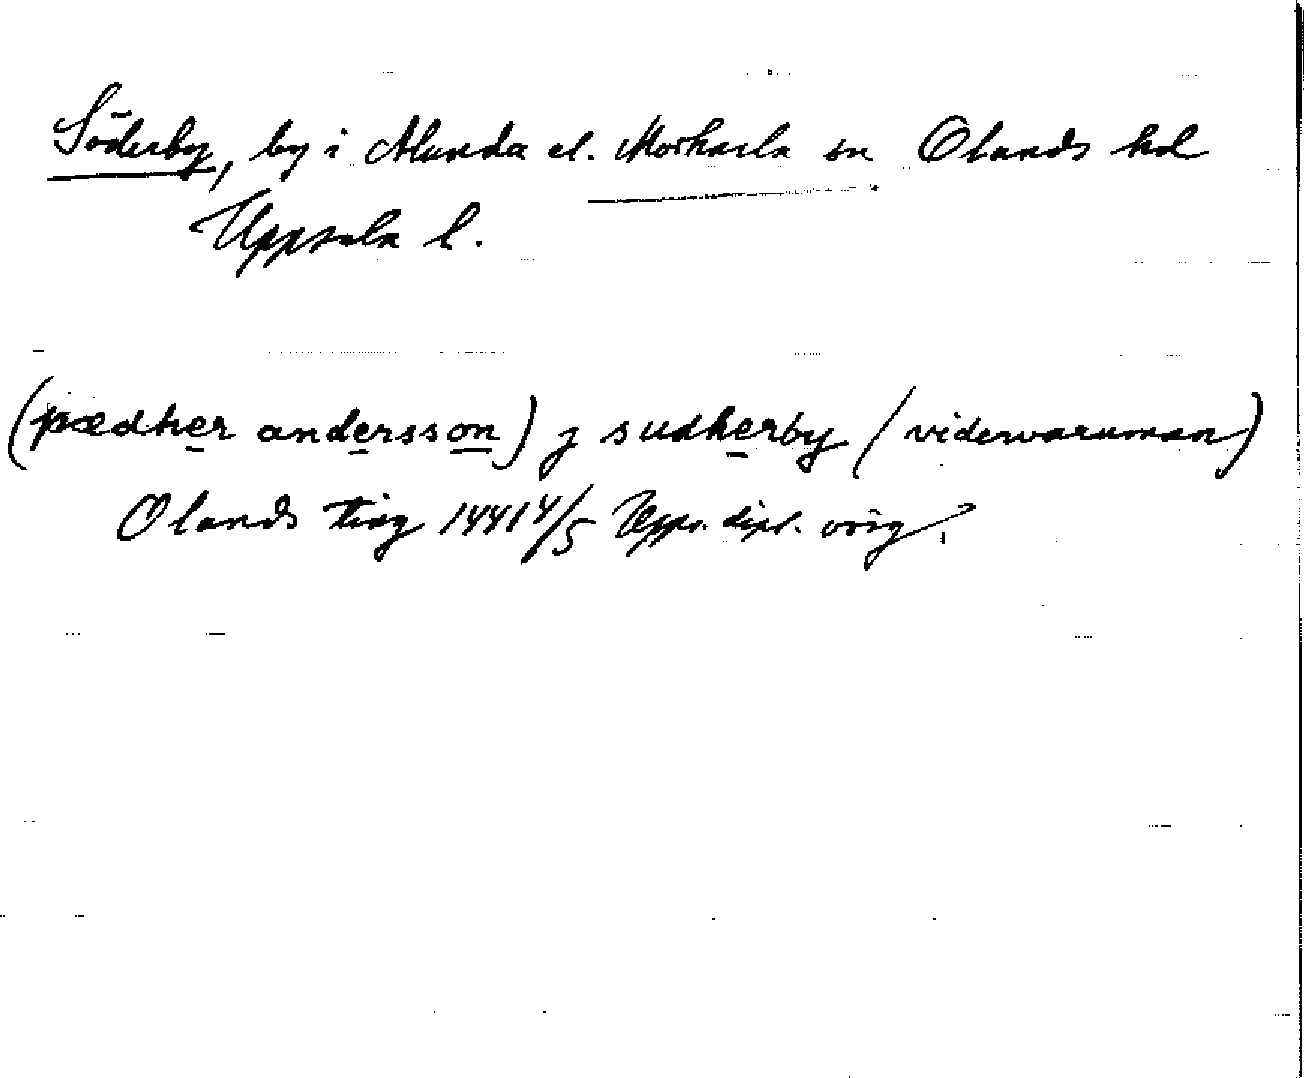 Söderby, by i Alunda el. Morkarla sn Olands hd
Uppsala l.
(pædher andersson) j sudherby (vidervaruman)
Olands ting 1441 4/5 Upps. dipl. orig.